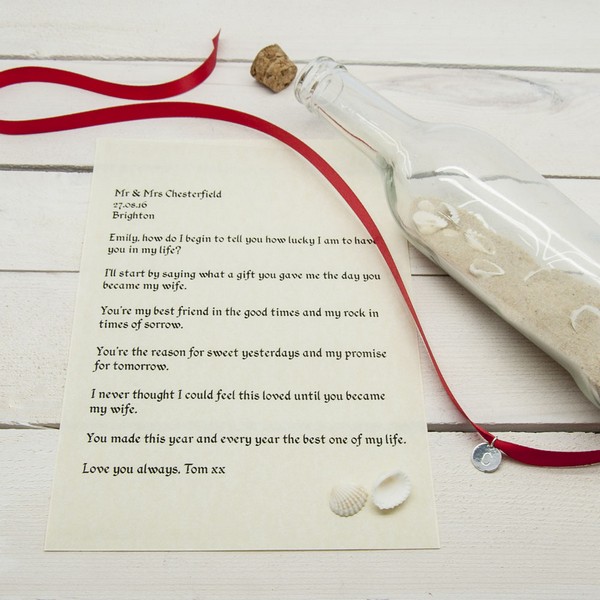 Mr & Mrs Chesterfield
27.08.16
Brighton
Emily, how do I begin to tell you how lucky I am to have
you in my life?
I'll start by saying what a gift you gave me the day you
became my wife.
You're my best friend in the good times and my rock in
times of sorrow.
You're the reason for sweet yesterdays and my promise
for tomorrow.
I never thought I could feel this loved until you became
my wife.
You made this year and every year the best one of my life.
Love you always, Tom xx
C